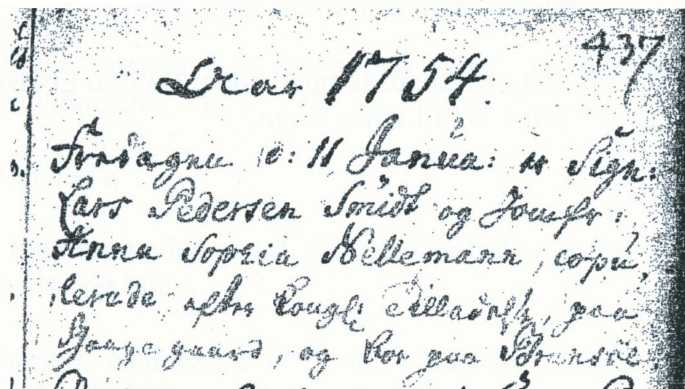 437
Aar 1754.
Fredagen d: 11 Janua: er Sign:
Lars Pedersen Smidt og Jomfr:
Anna Sophia Nellemann, copu,
lerede efter Kongl: Tilladelse, paa
gaard, og boe paa